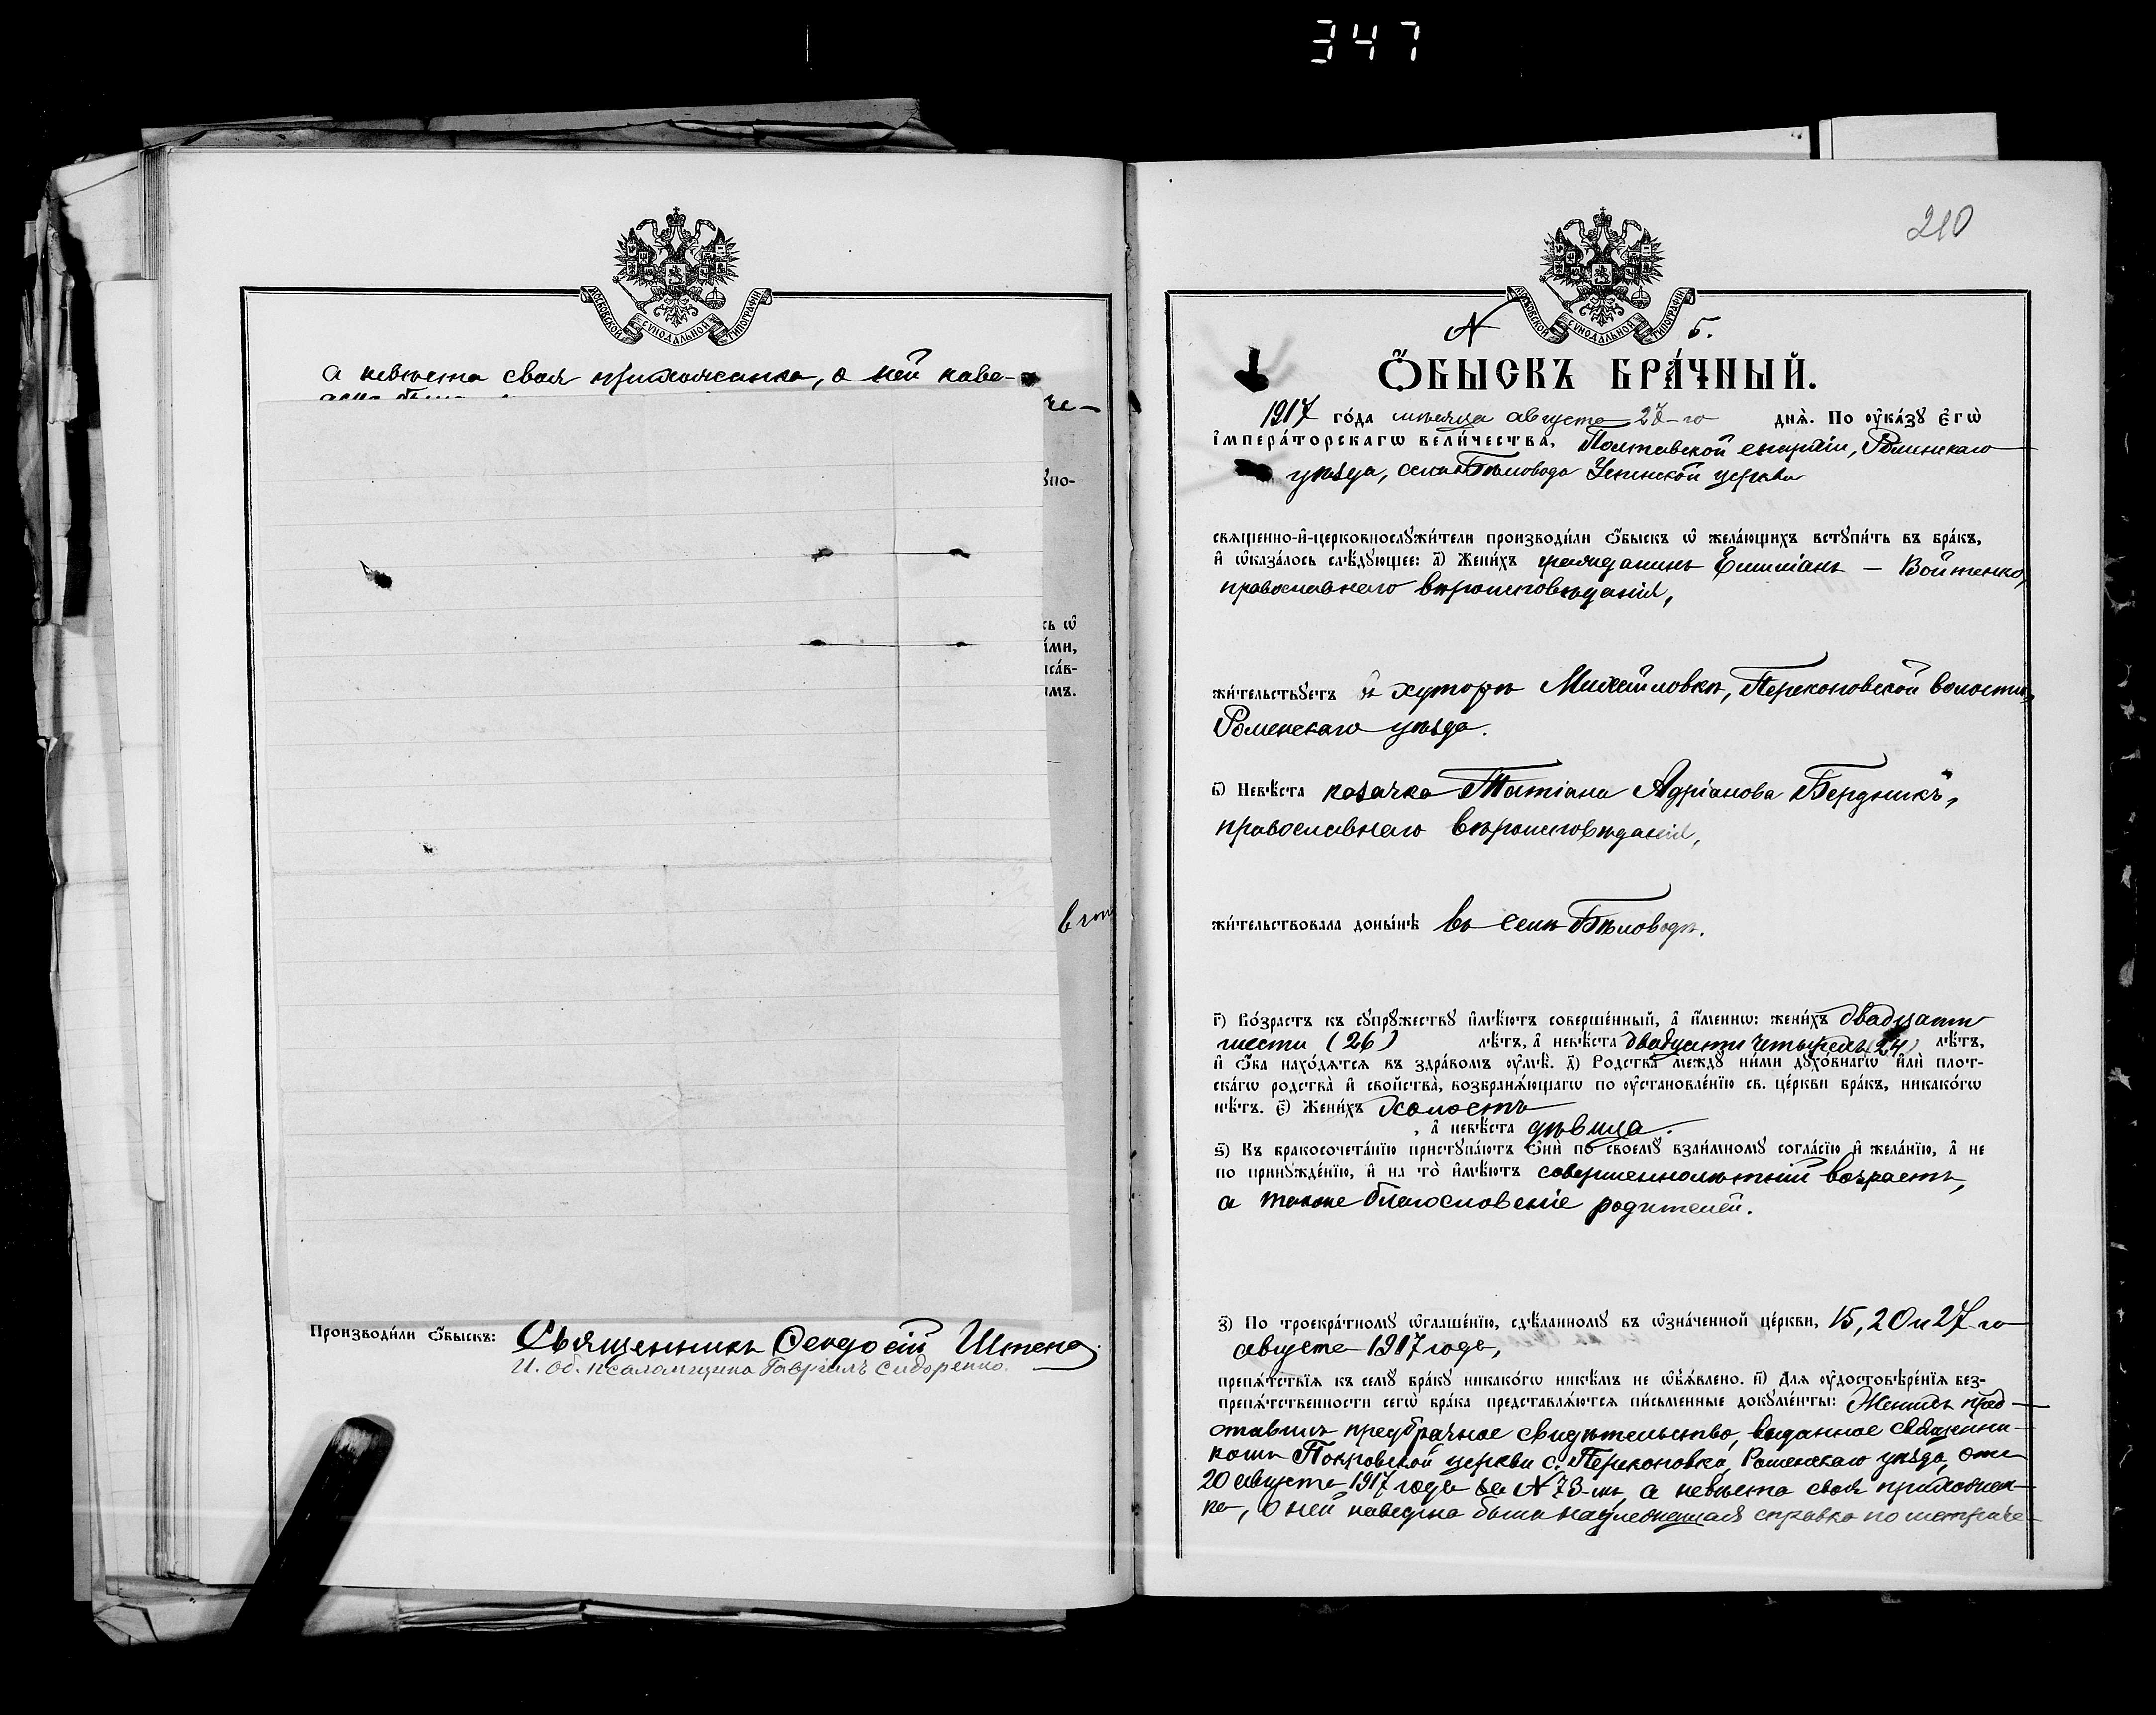 347
МОСКОВСКОЙ СѴНОДАЛЬНОЙ ТИПОГРАФІИ
а невѣста своя прихожанка, о ней наве-
че-
ꙋпо-
сь ѡ҆
ími,
иса́в-
имъ.
Производи́ли ѻ҆́быскъ: Священникъ Ѳеодосій Штепа.
И. об. псаломщика Гавріилъ Сидоренко.
210
МОСКОВСКОЙ СѴНОДАЛЬНОЙ ТИПОГРАФІИ
N 5.
Ѻ҆́БЫСКЪ БРА́ЧНЫЙ.
1917 го́да мѣсяца августа 27-го днѧ̀. По ᲂу҆ка́зꙋ Е҆гѡ̀
І҆мпера́торскагѡ Вели́чества, Полтавской епархіи, Роменскаго
уѣзда, села Бѣловода Успенской церкви
сващенно-и҆-церковнослꙋжи́тели производи́ли ѻ҆́быскъ ѡ҆ жела́ющихъ встꙋпи́ть въ бра́къ,
и҆ ѡ҆каза́лось слѣ́дꙋющее: а҃) Жени́хъ гражданинъ Емиліанъ — Войтенко,
православнаго вѣроисповѣданія,
жи́тельствꙋетъ въ хуторѣ Михайловкѣ, Перекоповской волости,
Роменскаго уѣзда.
в҃) Невѣ́ста козачка Татіана Адріанова Бердникъ,
православнаго вѣроисповѣданія,
жи́тельствовала доны́нѣ въ селѣ Бѣловодѣ.
г҃) Во́зрастъ къ сꙋпрꙋ́жествꙋ и҆мѣ́ютъ соверше́нный, а҆ и҆́менно: жени́хъ двадцати
шести (26) лѣ́тъ, а҆ невѣ́ста двадцати четырехъ (24) лѣ́тъ,
и҆ ѻ҆́ба нахо́дѧтсѧ въ здра́вомъ ᲂу҆мѣ̀. д҃) Родства̀ междꙋ̀ ни́ми дꙋхо́внагѡ и҆лѝ плот-
ска́гѡ родства̀ и҆ свойства̀, возбранѧ́ющагѡ по ᲂу҆становле́нїю св. це́ркви бра́къ, никако́гѡ
нѣ́тъ. е҃) Жени́хъ холостъ
, а҆ невѣ́ста дѣвица.
ѕ҃) Къ бракосочета́нїю пристꙋпа́ютъ ѻ҆нѝ по своемꙋ̀ взаи́мномꙋ согла́сїю и҆ жела́нїю, а҆ не
по принꙋжде́нїю, и҆ на то̀ и҆мѣ́ютъ совершеннолѣтній возрастъ,
а также благословеніе родителей.
з҃) По троекра́тномꙋ ѡ҆глаше́нїю, сдѣ́ланномꙋ въ ѡ҆зна́ченной це́ркви, 15, 20 и 27 го
августа 1917 года,
препѧ́тствїѧ къ семꙋ̀ бра́кꙋ никако́гѡ никѣ́мъ не ѡ҆б̾ѧ́влено. и҃) Для ᲂу҆достовѣре́нїѧ без-
препѧ́тственности сегѡ̀ бра́ка представлѧ́ютсѧ пи́сьменные докꙋме́нты: Женихъ пред-
ставилъ предбрачное свидѣтельство, выданное священни-
комъ Покровской церкви с. Перекоповки, Роменскаго уѣзда, отъ
20 августа 1917 года за N 73-мъ, а невѣста своя прихожан-
ка, о ней наведена была надлежащая справка по метриче-